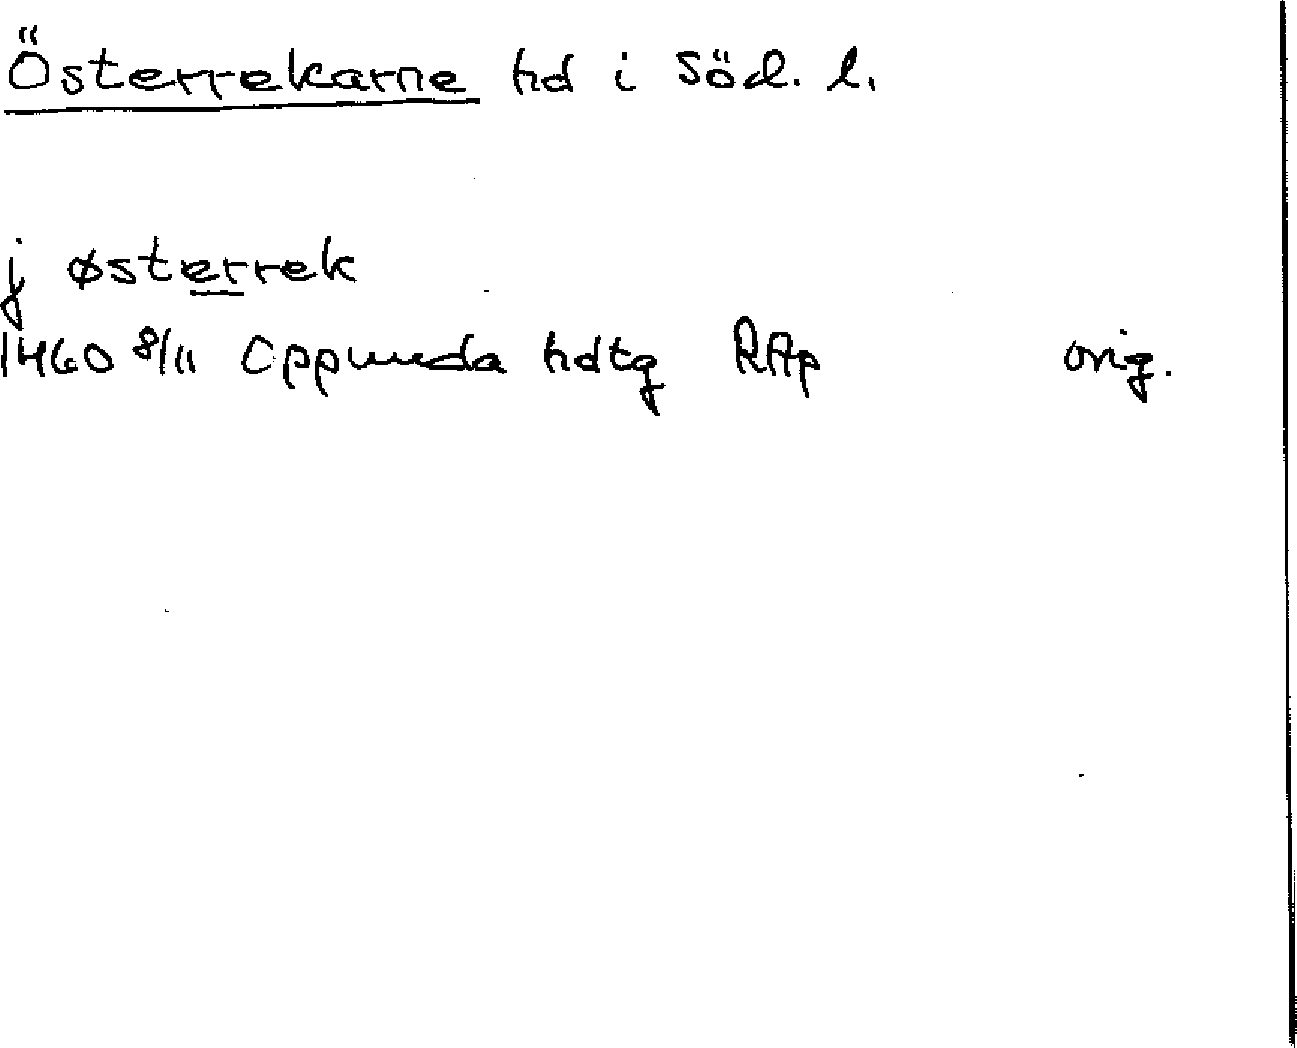 Österrekarne hd i Söd. l.
j østerrek
1460 8/11 Oppunda hdtg RAp orig.